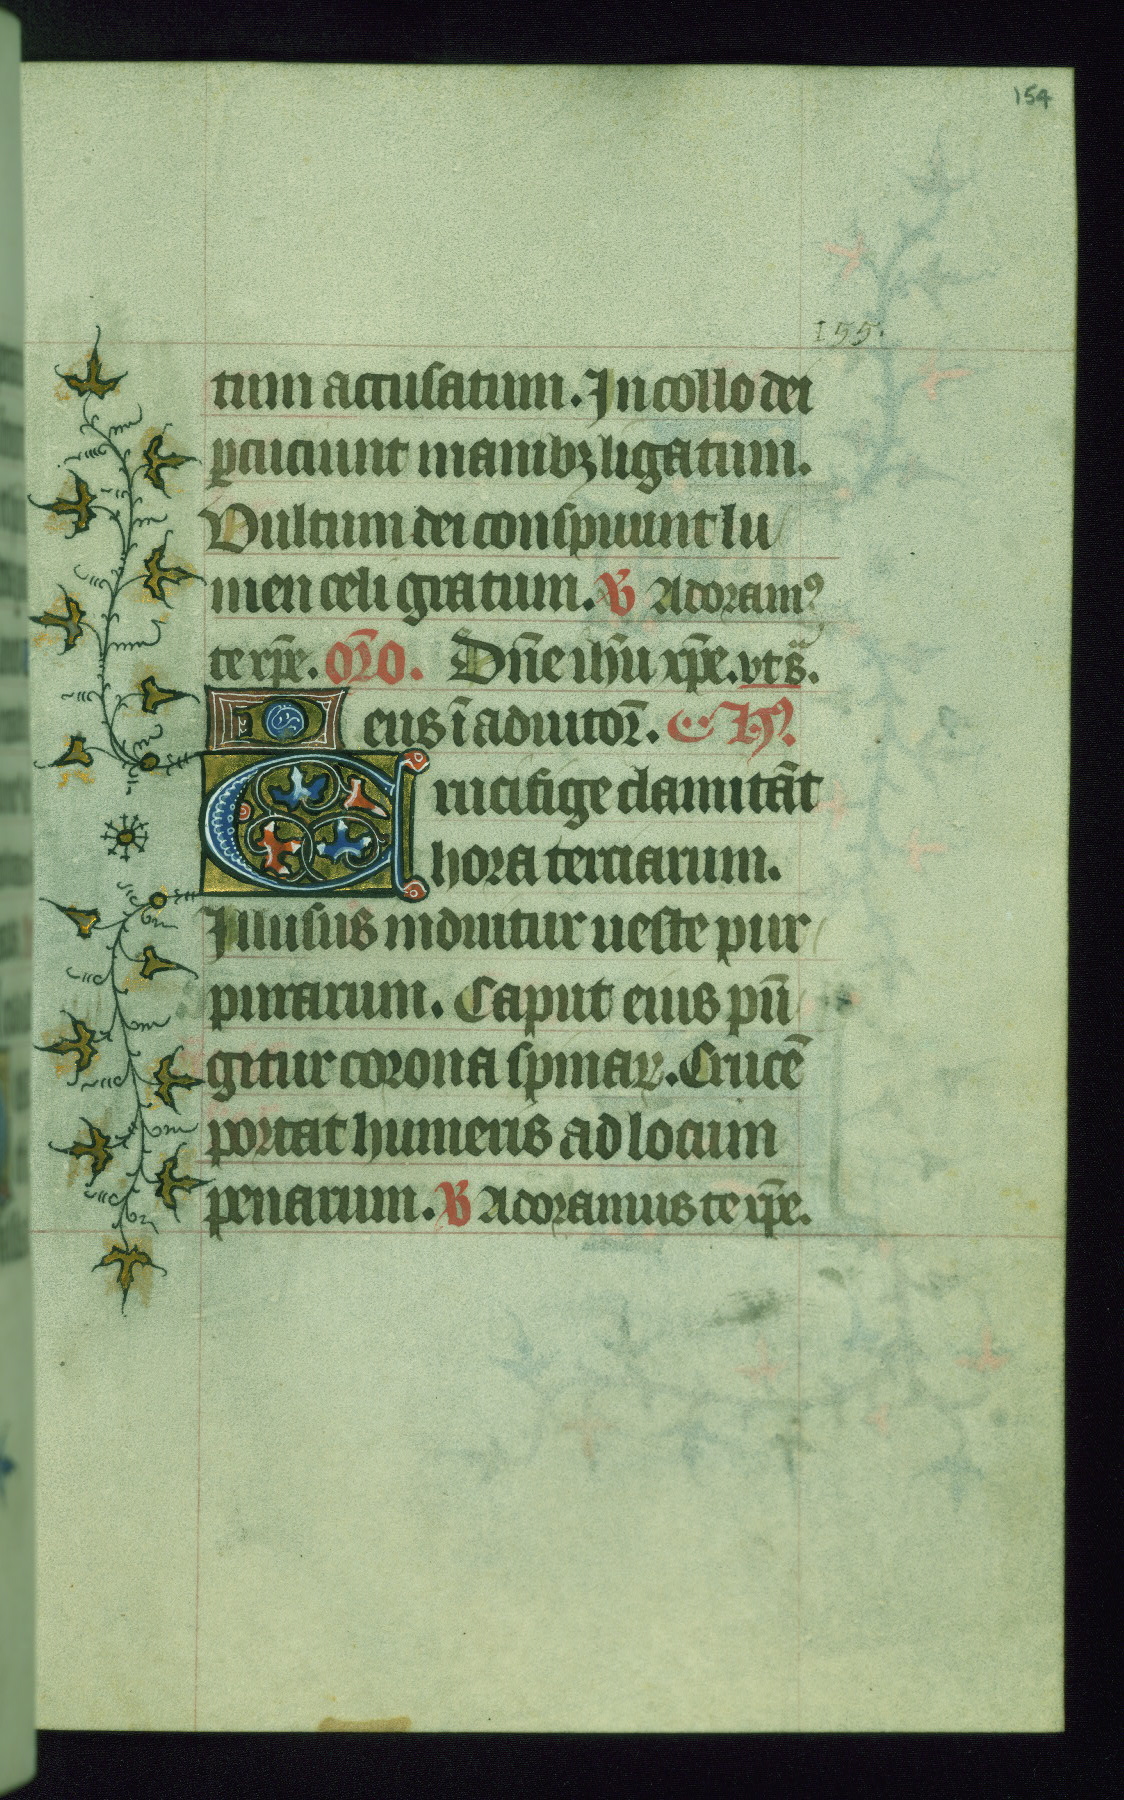 154
155.
tum accusatum. In collo dei
ꝑcuciunt manibꝫ ligatum.
Vultum dei conspuunt lu
men celi gratum. ℣ Adoramꝰ
te xp̄e. Or̄o. Dn̄e ih̄u xp̄e. vt sᷓ.
Deus ī adiutor̄. Hꝰ.
Crucifige clamitāt
hora terciarum.
Illusus induitur ueste pur
purarum. Caput eius pū
gitur corona spinaꝝ. Crucē
portat humeris ad locum
penarum. ℣ Adoramus te xp̄e.